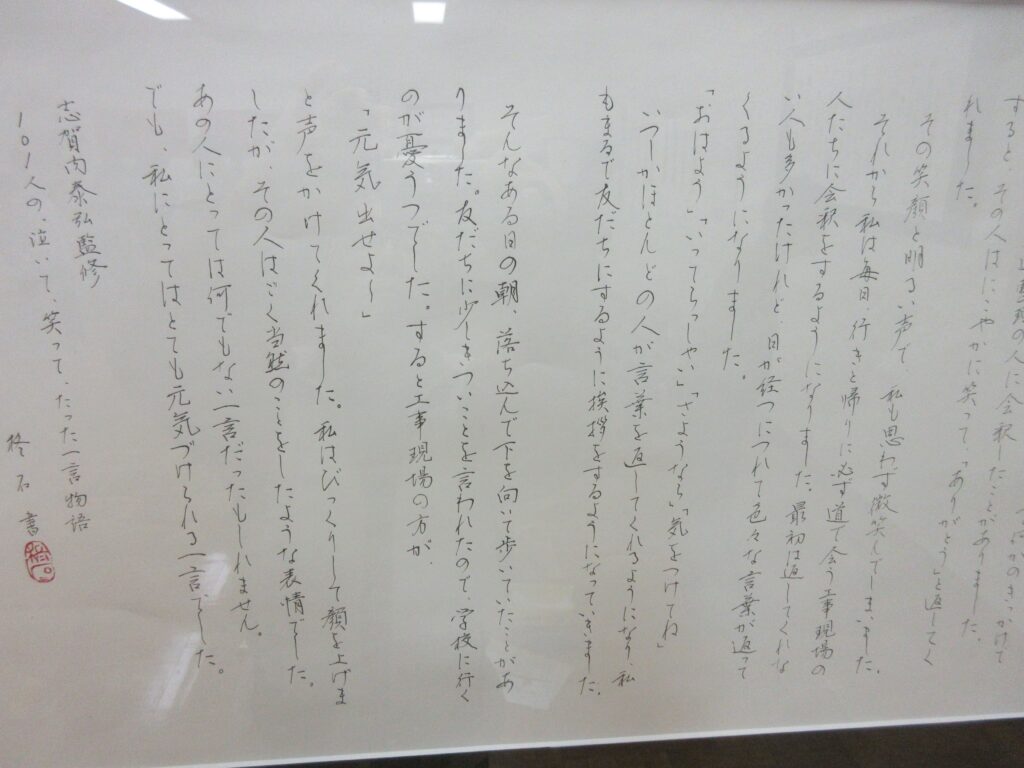 整理の人に会釈したことがありました。
すると、その人はにこやかに笑って、「ありがとう」と返してく
れました。
その笑顔と明るい声で、私も思わず微笑んでしまいました。
それから私は毎日、行きと帰りに必ず道で会う工事現場の
人たちに会釈をするようになりました。最初は返してくれな
い人も多かったけれど、日が経つにつれて色々な言葉が返って
くるようになりました。
「おはよう」「いってらっしゃい」「さようなら」「気をつけてね」
いつしかほとんどの人が言葉を返してくれるようになり、私
もまるで友だちにするように挨拶をするようになっていきました。
そんなある日の朝、落ち込んで下を向いて歩いていたことがあ
りました。友だちに少しきついことを言われたので、学校に行く
のが憂うつでした。すると工事現場の方が、
「元気出せよ〜」
と声をかけてくれました。私はびっくりして顔を上げま
したが、その人はごく当然のことをしたような表情でした。
あの人にとっては何でもない一言だったかもしれません。
でも、私にとってはとても元気づけられる一言でした。
志賀内泰弘監修
101人の、泣いて、笑って、たった一言物語
柊石書